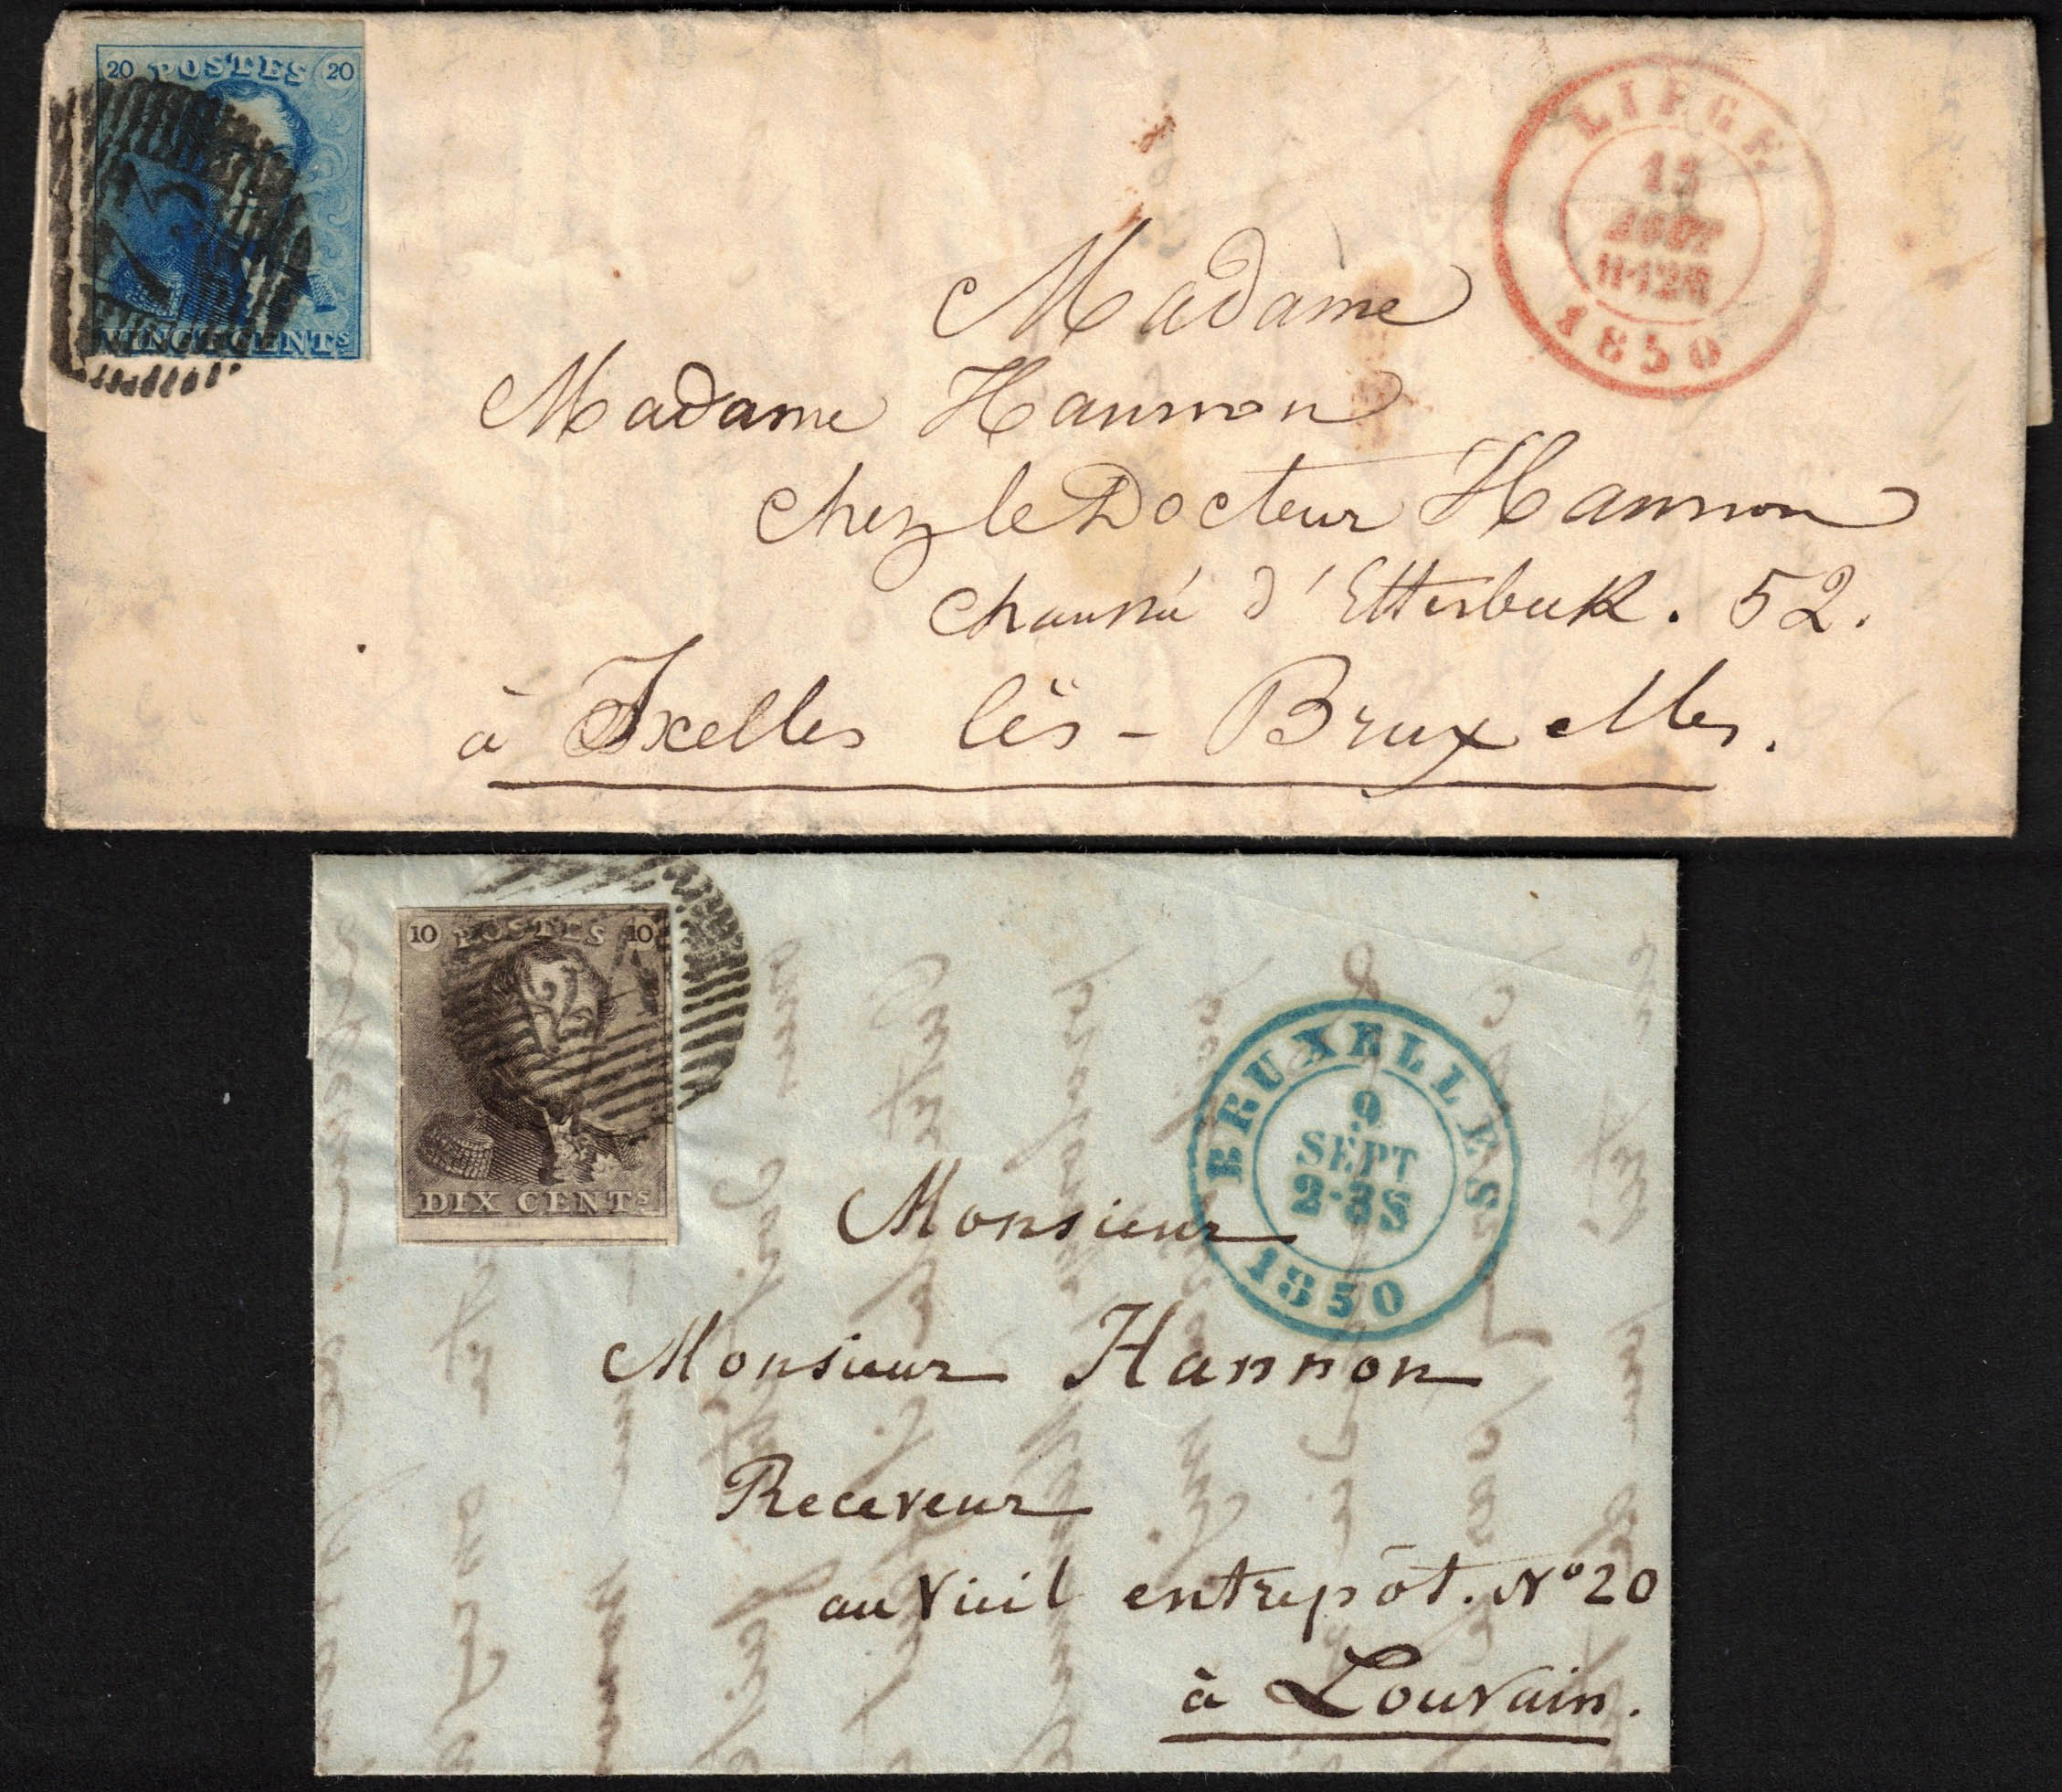 20 POSTES 20
VINGT CENTS
LIEGE
13
AOUT
11-12M
1850
Madame
Madame Hannon
chez le Docteur Hannon
chaussée d'Etterbeek. 52.
à Ixelles lès-Bruxelles.
10 POSTES 10
DIX CENTS
BRUXELLES
9
SEPT
2-3S
1850
Monsieur
Monsieur Hannon
Receveur
au vieil entrepôt. N° 20
à Louvain.